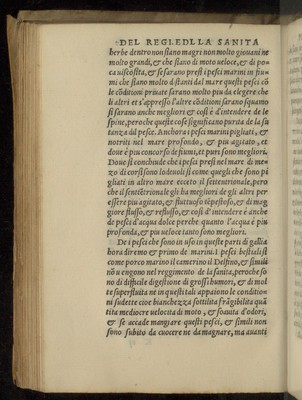 DEL REG. ED. LLA SANITA
herbe dentro non siano magri non molto giouani ne
molto grandi, & che siano di moto veloce, & di po
ca viscosita, & se sarano presi i pesci marini in fiu-
mi che siano molto distanti dal mare questi pesci cō
le cōditioni priuate sarano molto piu da elegere che
li altri et s'appresso l'altre cōditioni sarano squamo
si sarano anche megliori & cosi è d'intendere de le
spine, peroche queste cose significano purita de la su
stanza dal pesce. Anchora i pesci marini pigliati, &
notriti nel mare profondo, & piu agitato, et
doue è piu concorso de fiumi, et pure sono megliori.
Doue si conchiude che i pesci presi nel mare di me-
zo di corsi sono lodeuoli si come quegli che sono pi
gliati in altro mare ecceto il settentrionale, pero
che il sententrionale gli ha megliori de gli altri per
essere piu agitato, & fluttuoso tēpestoso, & di mag
giore flusso, & reflusso, & cosi d'intendere è anche
de pesci d'acqua dolce perche quanto l'acqua è piu
profonda, & piu veloce tanto sono megliori.
De i pesci che sono in uso in queste parti di gallia
hora diremo & primo de marini. I pesci bestiali si
come porco marino il camerino il Delfino, & simili
nō u engono nel reggimento de la sanita, peroche so
no di difficile digestione di grossi humori, & di mol
te superfluita ne in questi tali appaiono le condition
ni sudette cioe bianchezza sottilita frāgibilita quā
tita mediocre velocita di moto, & soauita d'odori,
& se accade mangiare questi pesci, & simili non
sono subito da cuocere ne da magnare, ma auanti